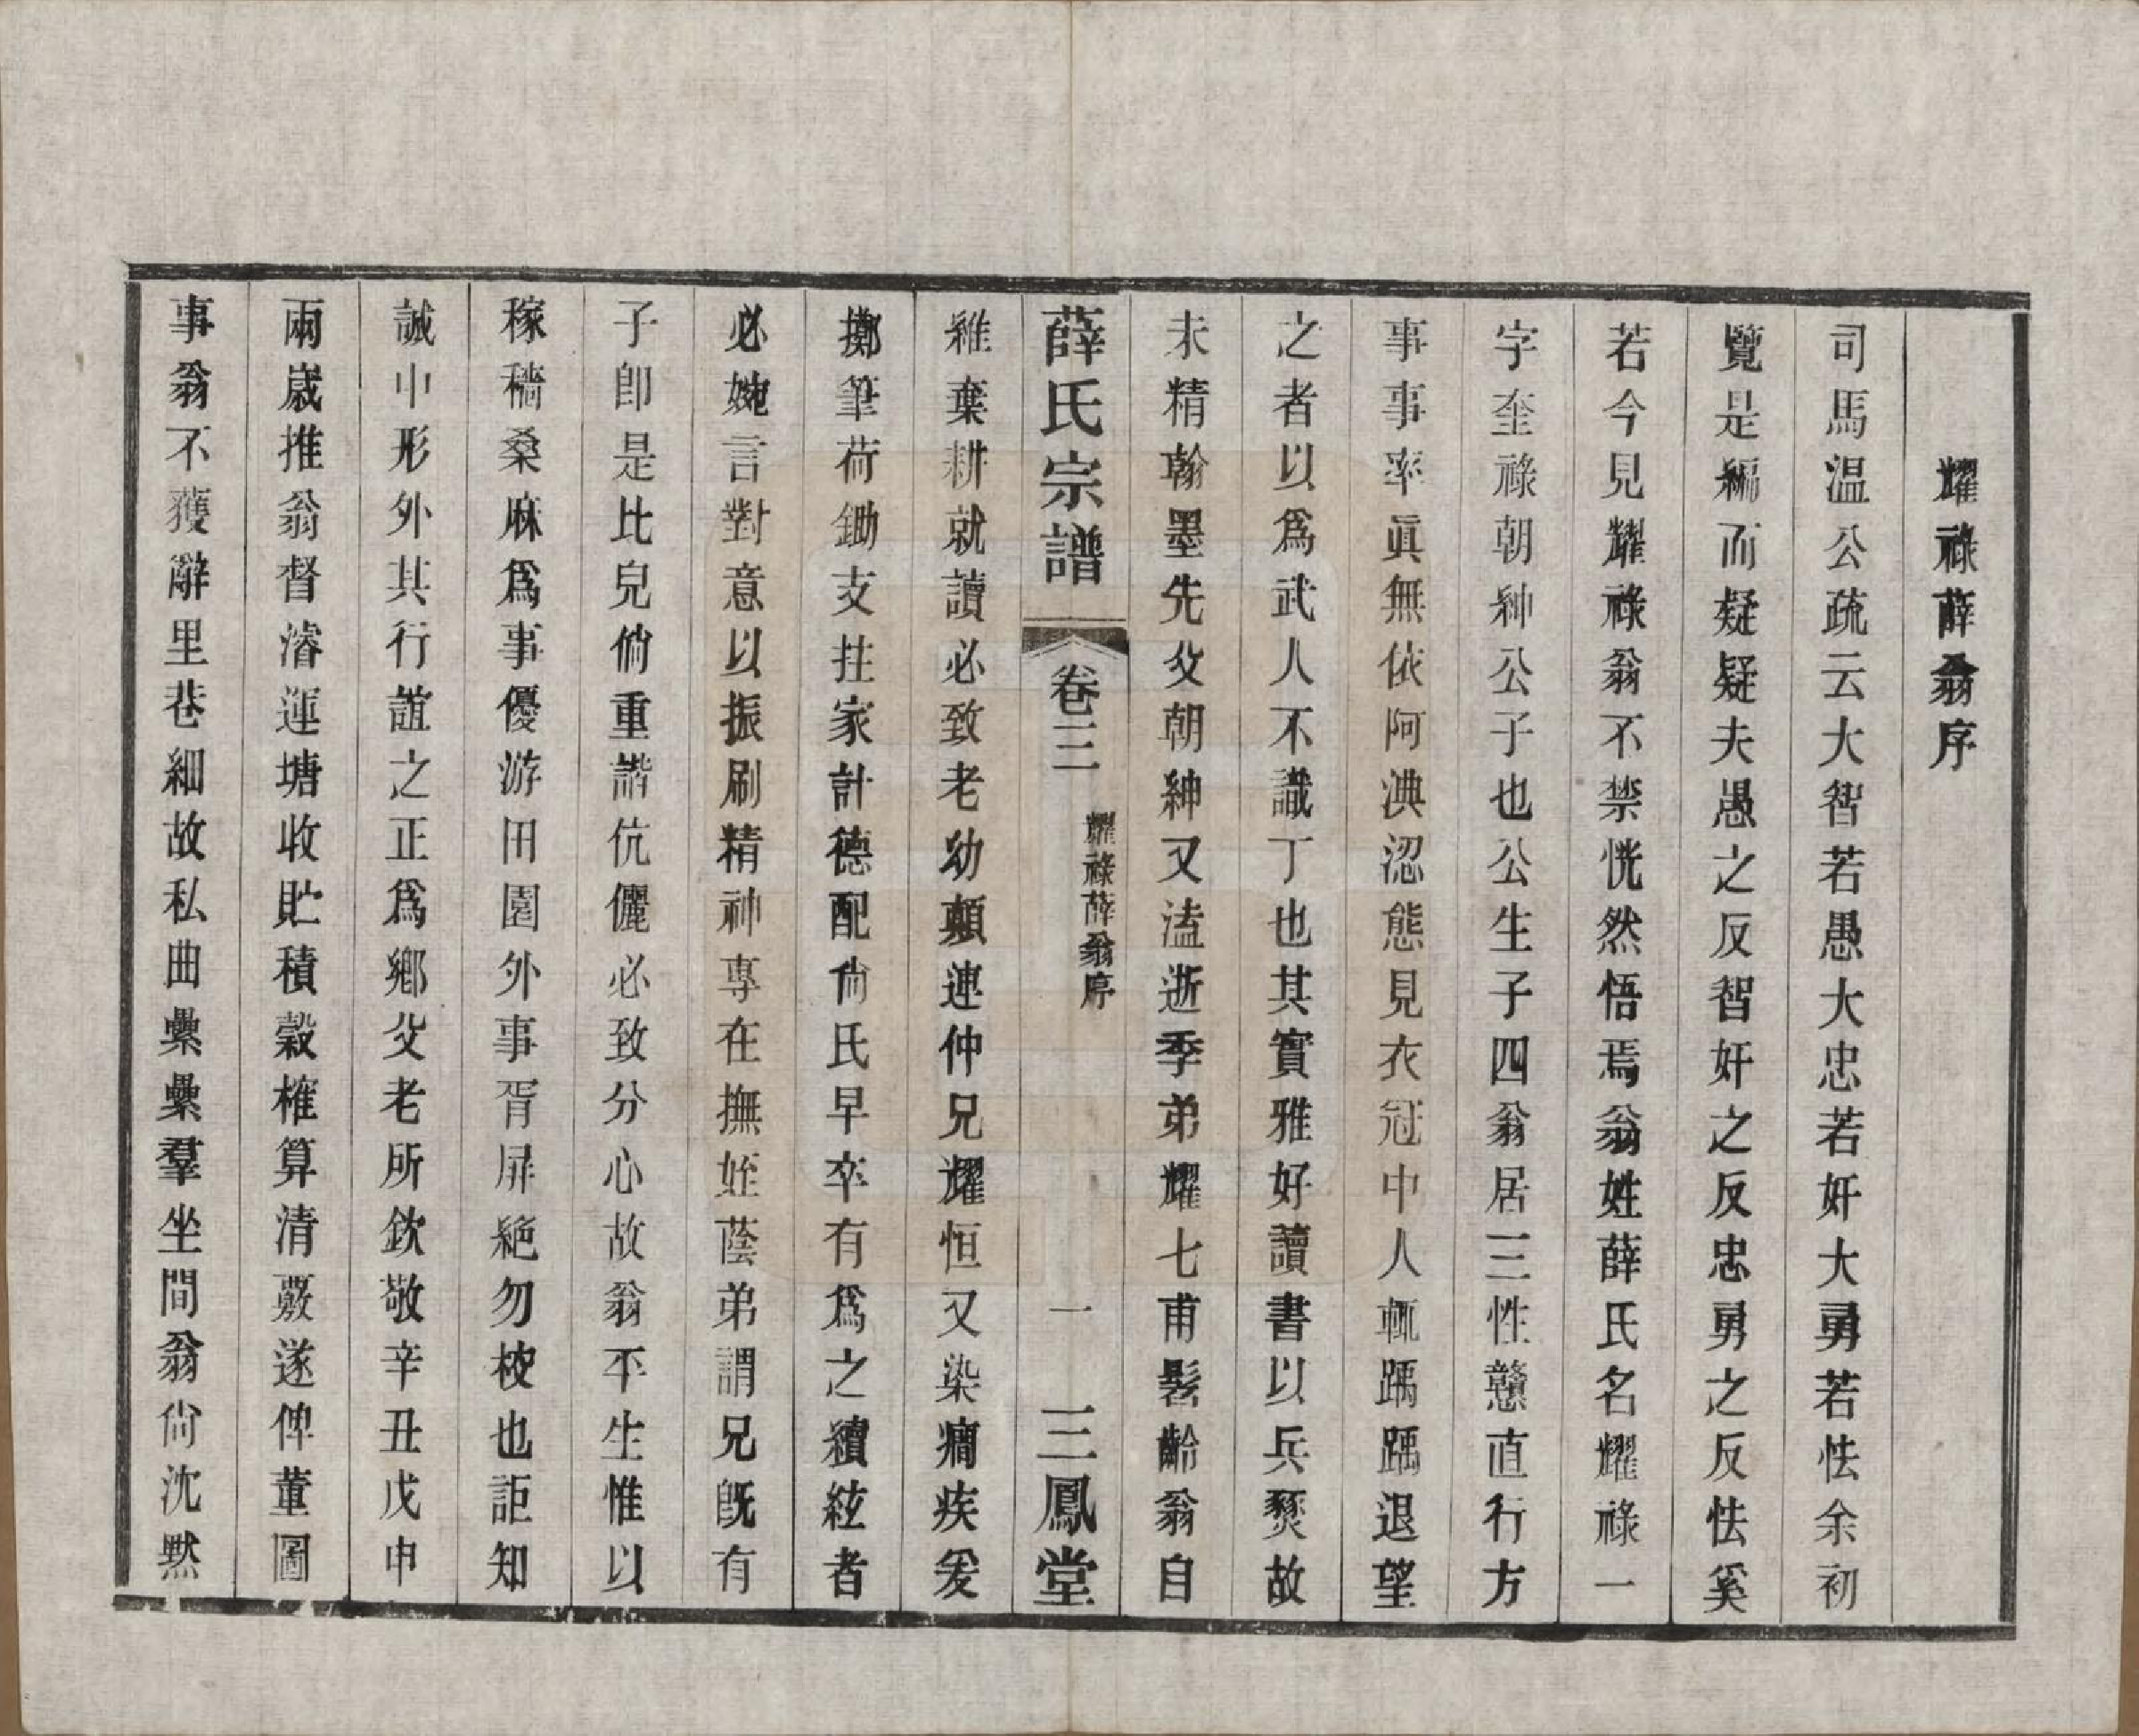 耀祿薛翁序
司馬温公疏云大智若愚大忠若奸大勇若怯余初
覽是編而疑疑夫愚之反智奸之反忠勇之反怯奚
若今見耀祿翁不禁恍然悟焉翁姓薛氏名耀祿一
字奎祿朝紳公子也公生子四翁居三性戇直行方
事事率眞無依阿淟涊態見衣冠中人輒踽踽退望
之者以爲武人不識丁也其實雅好讀書以兵燹故
未精翰墨先父朝紳又溘逝季弟耀七甫髫齡翁自
薛氏宗譜
卷三
耀祿薛翁序
一
三鳳堂
維棄耕就讀必致老幼顛連仲兄耀恒又染癇疾爰
擲筆荷鋤支拄家計德配尙氏早卒有爲之續絃者
必婉言對意以振刷精神專在撫姪蔭弟謂兄旣有
子卽是比兒倘重諧伉儷必致分心故翁平生惟以
稼穡桑麻爲事優游田園外事胥屏絕勿校也詎知
誠中形外其行誼之正爲鄉父老所欽敬辛丑戊申
兩歲推翁督濬運塘收貯積穀榷算清覈遂俾董圖
事翁不獲辭里巷細故私曲纍纍羣坐間翁尙沈默